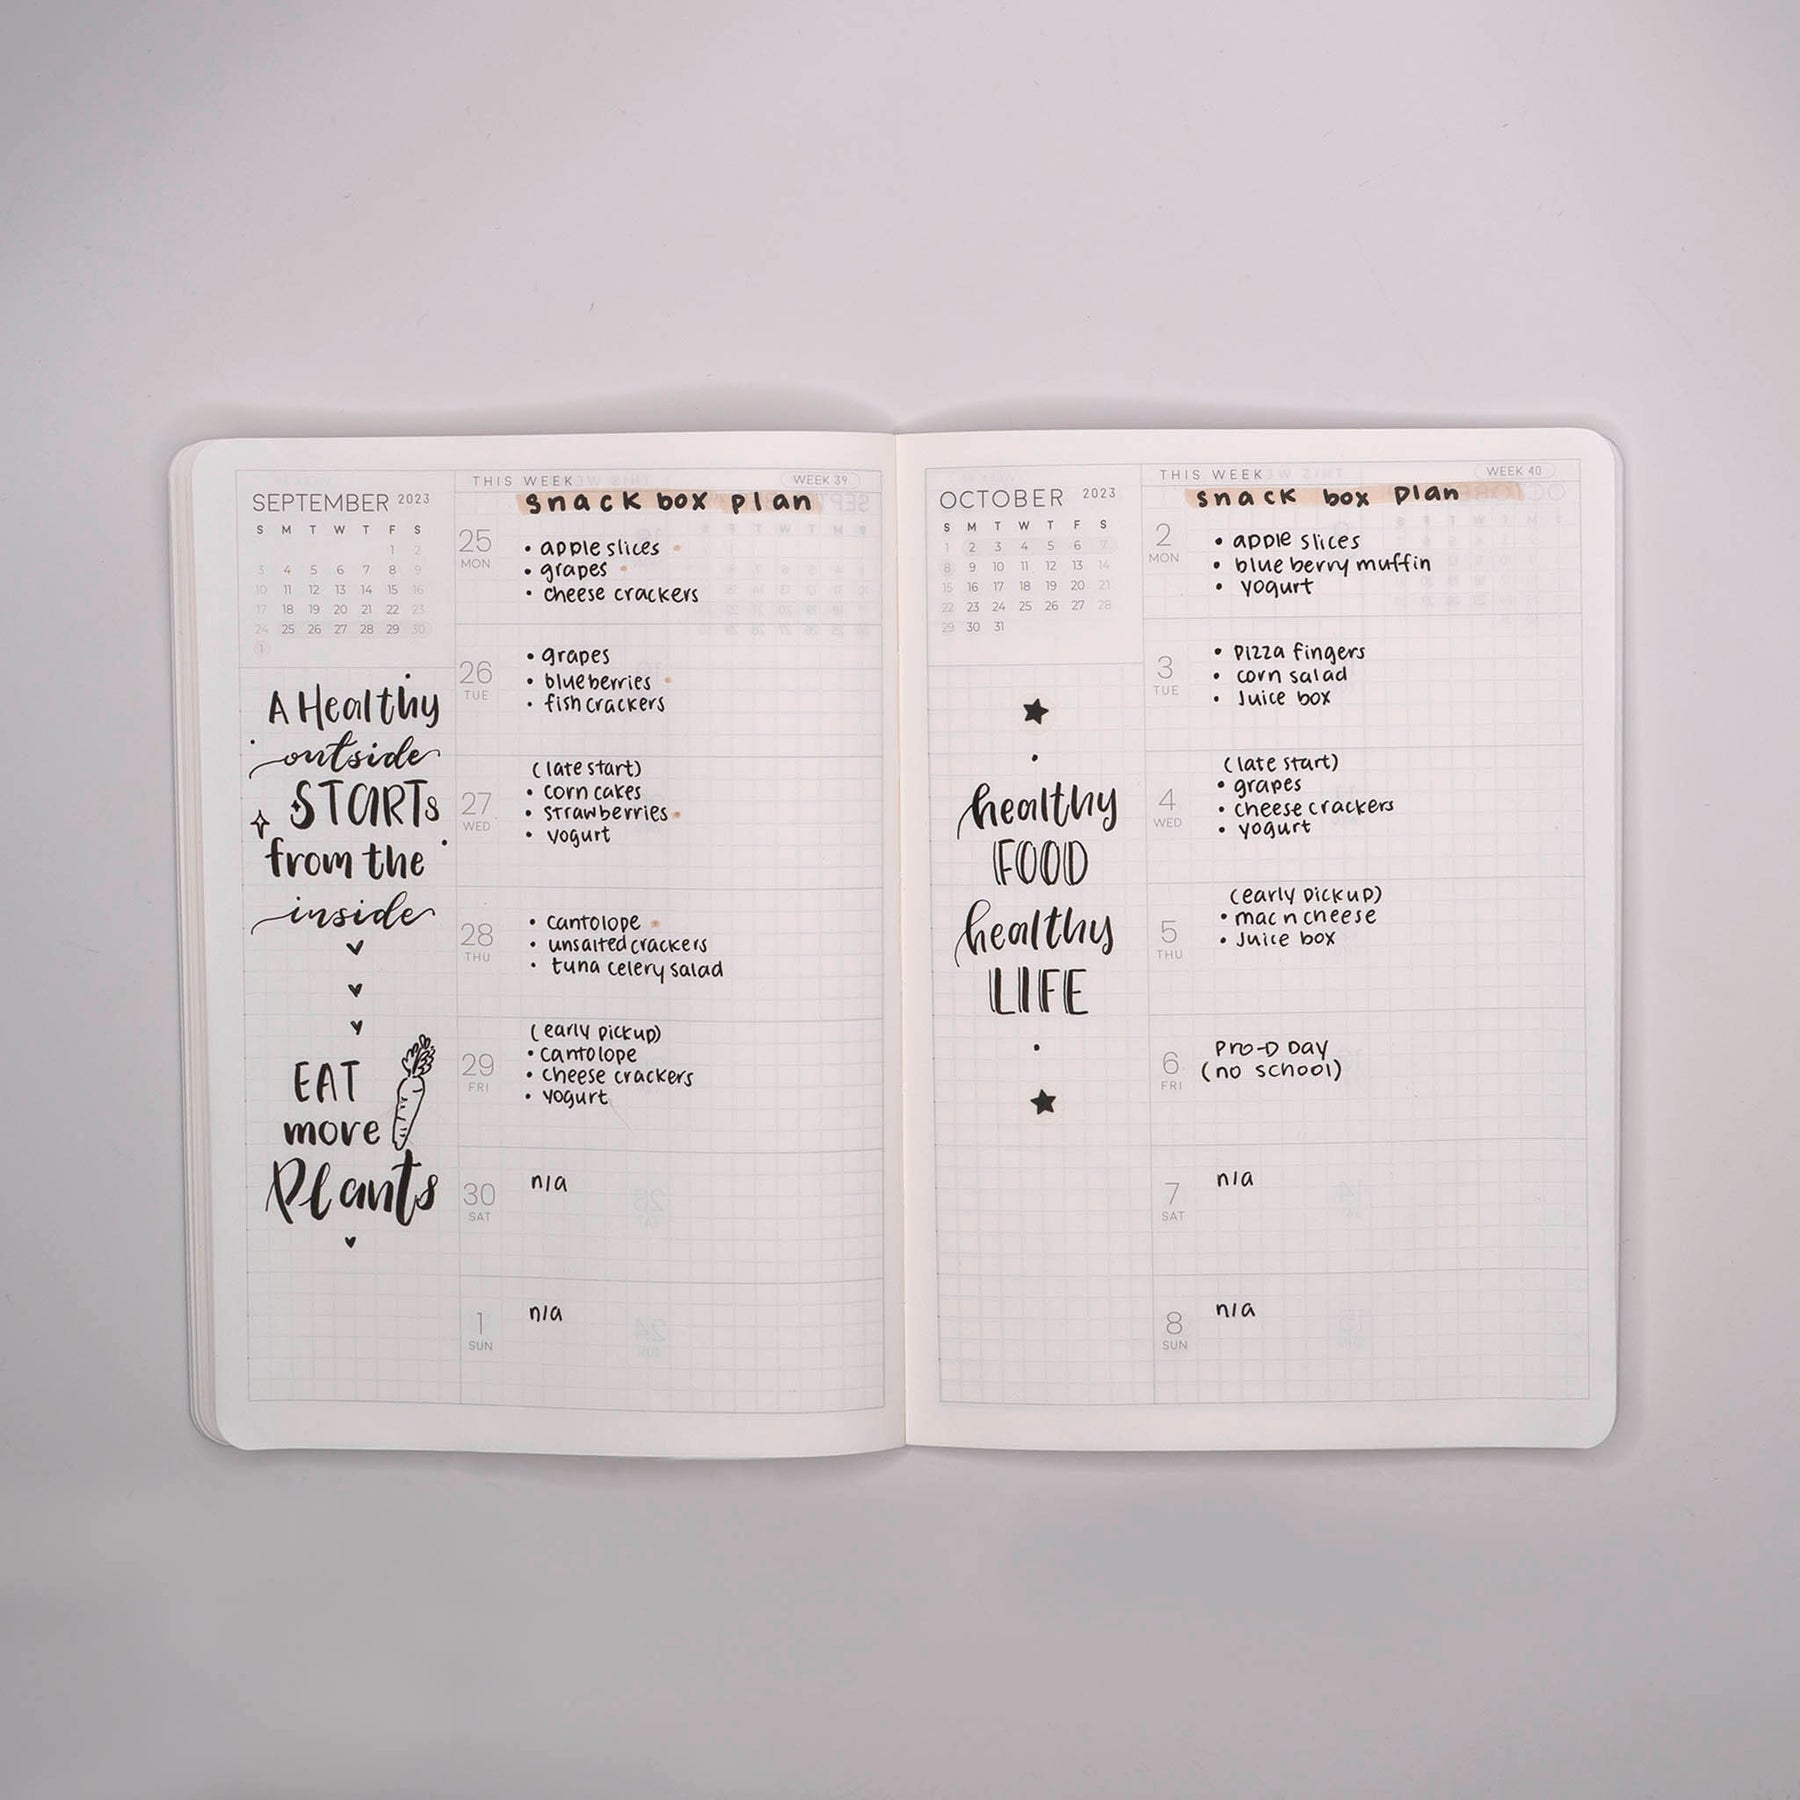 SEPTEMBER 2023
S M T W T F S
1 2
3 4 5 6 7 8 9
10 11 12 13 14 15 16
17 18 19 20 21 22 23
24 25 26 27 28 29 30
1
A Healthy
outside
STARTS
from the
inside
EAT
more
Plants
THIS WEEK WEEK 39
snack box plan
25 MON
• apple slices
• grapes
• cheese crackers
26 TUE
• grapes
• blueberries
• fish crackers
27 WED
(late start)
• corn cakes
• strawberries
• yogurt
28 THU
• cantolope
• unsalted crackers
• tuna celery salad
29 FRI
(early pickup)
• cantolope
• cheese crackers
• yogurt
30 SAT
n/a
1 SUN
n/a
OCTOBER 2023
S M T W T F S
1 2 3 4 5 6 7
8 9 10 11 12 13 14
15 16 17 18 19 20 21
22 23 24 25 26 27 28
29 30 31
healthy
FOOD
healthy
LIFE
THIS WEEK WEEK 40
snack box plan
2 MON
• apple slices
• blue berry muffin
• yogurt
3 TUE
• pizza fingers
• corn salad
• Juice box
4 WED
(late start)
• grapes
• cheese crackers
• yogurt
5 THU
(early pickup)
• mac n cheese
• Juice box
6 FRI
Pro-D Day
(no school)
7 SAT
n/a
8 SUN
n/a